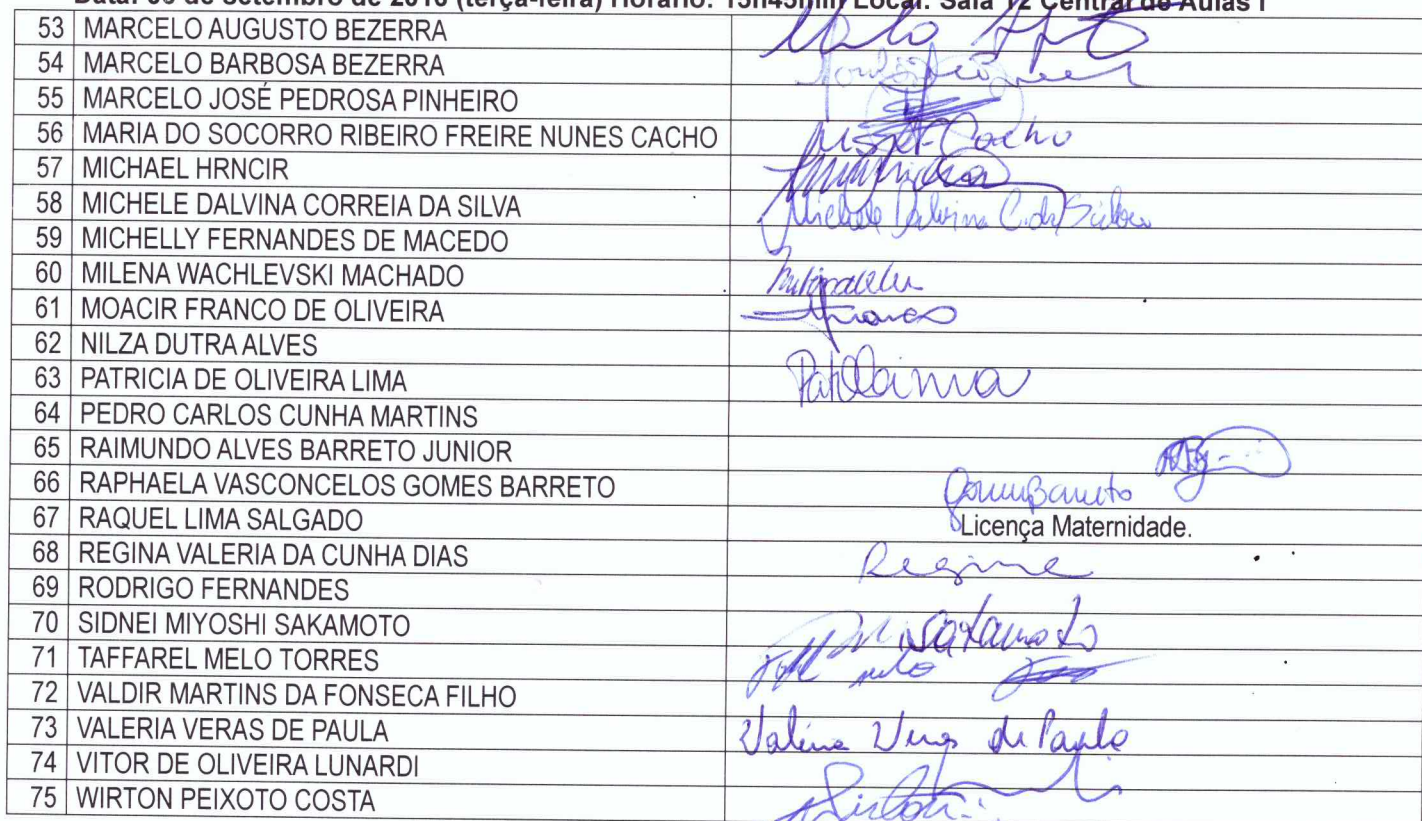 Data: 06 de setembro de 2016 (terça-feira) Horário: 15h45min Local: Sala 12 Central de Aulas I
53 MARCELO AUGUSTO BEZERRA
54 MARCELO BARBOSA BEZERRA
55 MARCELO JOSÉ PEDROSA PINHEIRO
56 MARIA DO SOCORRO RIBEIRO FREIRE NUNES CACHO Cacho
57 MICHAEL HRNCIR
58 MICHELE DALVINA CORREIA DA SILVA Michele Dalvina C. da Silva
59 MICHELLY FERNANDES DE MACEDO
60 MILENA WACHLEVSKI MACHADO
61 MOACIR FRANCO DE OLIVEIRA Franco
62 NILZA DUTRA ALVES
63 PATRICIA DE OLIVEIRA LIMA
64 PEDRO CARLOS CUNHA MARTINS
65 RAIMUNDO ALVES BARRETO JUNIOR
66 RAPHAELA VASCONCELOS GOMES BARRETO
67 RAQUEL LIMA SALGADO Licença Maternidade.
68 REGINA VALERIA DA CUNHA DIAS Regina
69 RODRIGO FERNANDES
70 SIDNEI MIYOSHI SAKAMOTO Sakamoto
71 TAFFAREL MELO TORRES
72 VALDIR MARTINS DA FONSECA FILHO
73 VALERIA VERAS DE PAULA Valéria Veras de Paula
74 VITOR DE OLIVEIRA LUNARDI
75 WIRTON PEIXOTO COSTA Wirton